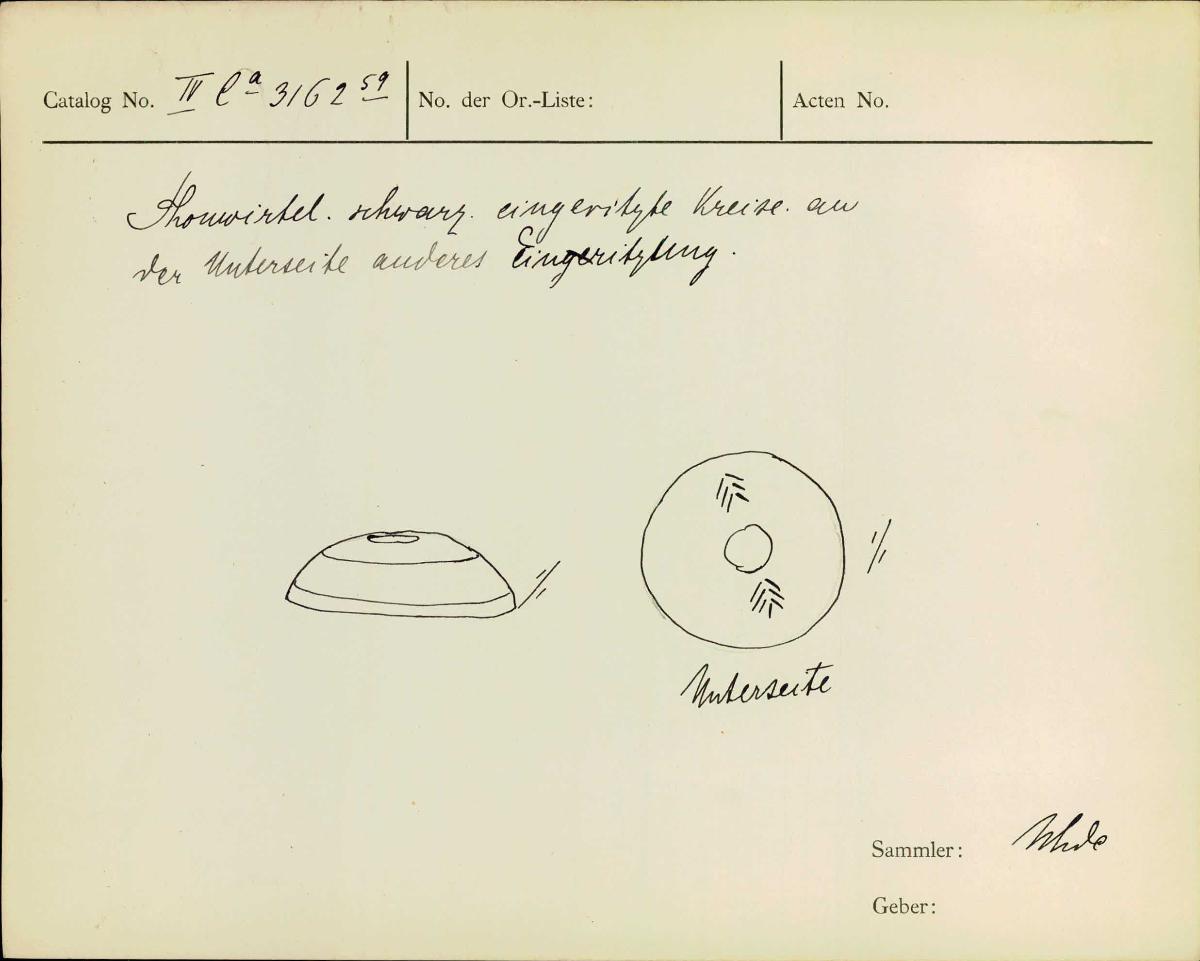 Catalog No. IV Ca 3162 59
No. der Or.-Liste:
Acten No.
Thonwirtel. schwarz. eingeritzte Kreise. an
der Unterseite anderes Eingeritztung.
1/1
1/1
Unterseite
Sammler: Uhde
Geber: